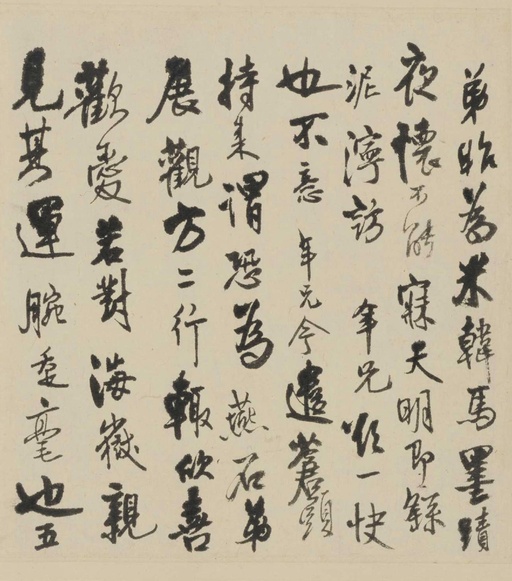 弟昨為米韓馬墨蹟
夜懷不能寐天明即
泥濘訪 年兄一快
也不意 年兄今遣蒼頭
持来謂恐為 燕石弟
展觀方二行輙欣喜
歡愛若對海嶽親
見其運腕垂毫也五